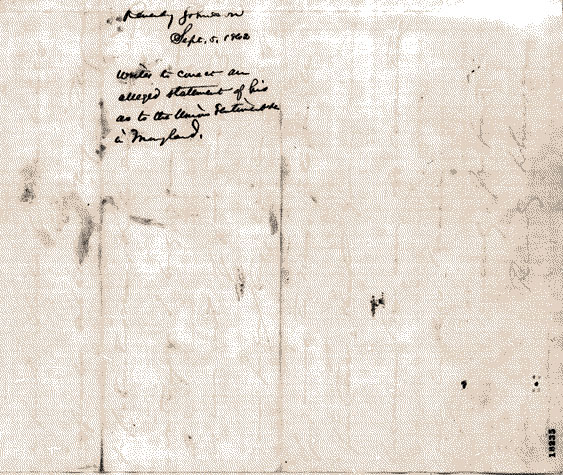 Reverdy Johnson
Sept. 5, 1862
Writes to correct an
alleged statement of his
as to the Union Sentiment
in Maryland.